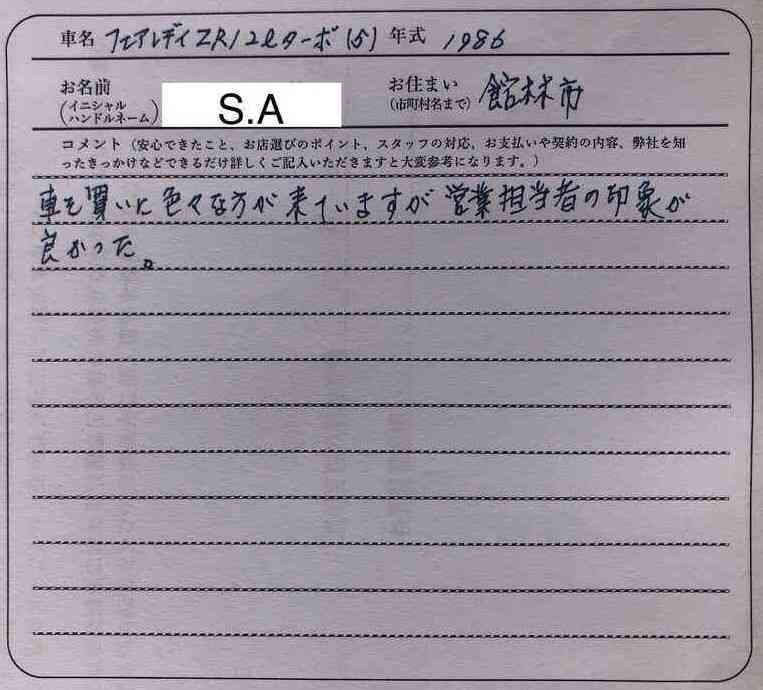 車名 フェアレディZR12ℓターボ(5) 年式 1986
お名前 (イニシャル ハンドルネーム) S.A お住まい (市町村名まで) 館林市
コメント（安心できたこと、お店選びのポイント、スタッフの対応、お支払いや契約の内容、弊社を知
ったきっかけなどできるだけ詳しくご記入いただきますと大変参考になります。）
車を買いに色々な方が来ていますが営業担当者の印象が
良かった。